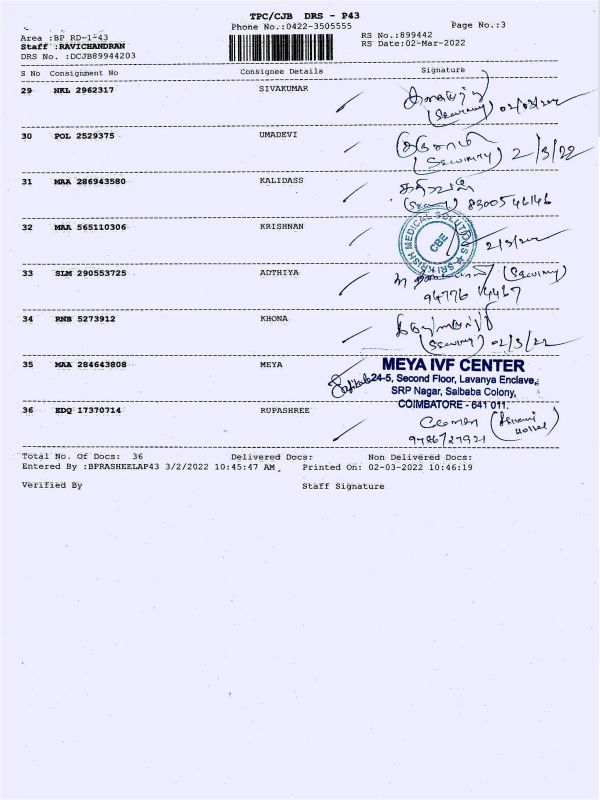 TPC/CJB DRS - P43
Phone No.:0422-3505555
Page No.:3
Area :BP RD-1-43
RS No.:899442
Staff :RAVICHANDRAN
RS Date:02-Mar-2022
DRS No. :DCJB89944203
S No Consignment No Consignee Details Signature
29 NKL 2962317 SIVAKUMAR
(Security) 02/03/22
30 POL 2529375 UMADEVI
(Security) 2/3/22
31 MAA 286943580 KALIDASS
8300546146
32 MAA 565110306 KRISHNAN
SRI KRISH MEDICAL SOLUTIONS
CBE
2/3/22
33 SLM 290553725 ADTHIYA
(Security)
34 RNB 5273912 KHONA
(Security) 02/3/22
35 MAA 284643808 MEYA
MEYA IVF CENTER
24-5, Second Floor, Lavanya Enclave,
SRP Nagar, Saibaba Colony,
COIMBATORE - 641 011.
36 EDQ 17370714 RUPASHREE
9486727921
Total No. Of Docs: 36 Delivered Docs: Non Delivered Docs:
Entered By :BPRASHEELAP43 3/2/2022 10:45:47 AM, Printed On: 02-03-2022 10:46:19
Verified By Staff Signature